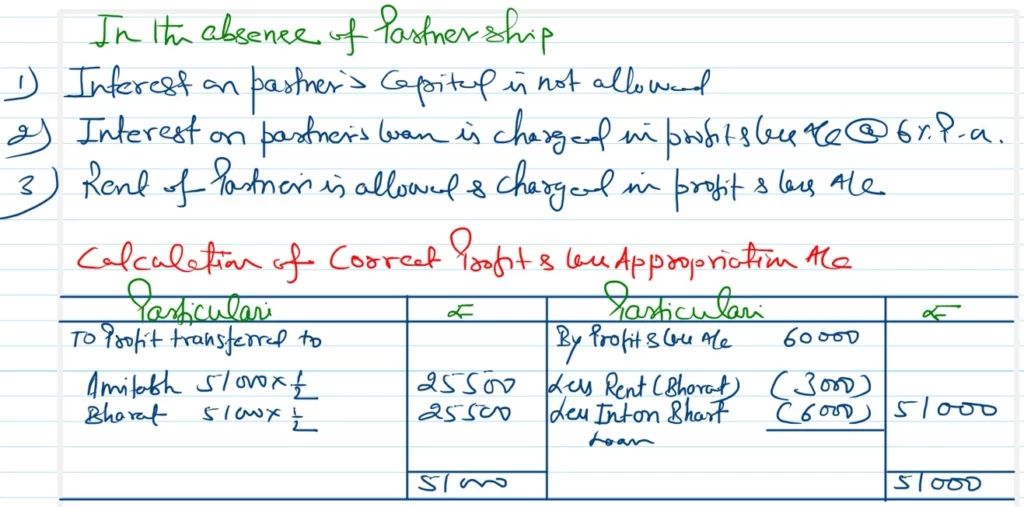 In the absence of Partnership
1) Interest on partner's Capital is not allowed
2) Interest on partner's loan is charged in profit & loss A/c @ 6% P.a.
3) Rent of Partner is allowed & charged in profit & loss A/c
Calculation of Correct Profit & loss Appropriation A/c
Particulars ₹ Particulars ₹
To Profit transferred to By Profit & loss A/c 60000
Amitabh 51000 x 1/2 25500 Less Rent (Bharat) (3000)
Bharat 51000 x 1/2 25500 Less Int on Bhart (6000) 51000
Loan
51000 51000